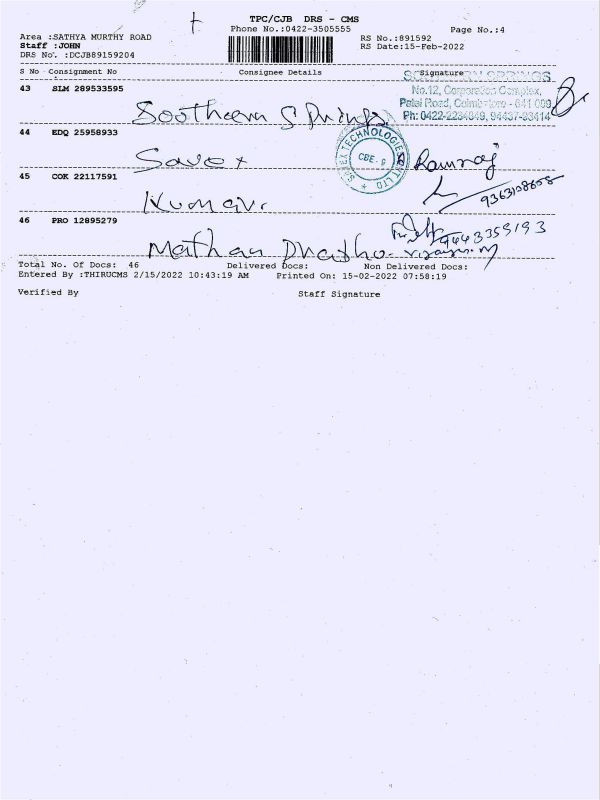 TPC/CJB DRS - CMS
Phone No.:0422-3505555
Page No.:4
Area :SATHYA MURTHY ROAD
RS No.:891592
Staff :JOHN
RS Date:15-Feb-2022
DRS No. :DCJB89159204
S No Consignment No Consignee Details Signature
43 SLM 289533595
Southern Springs
No.12, Corporation Complex,
Patel Road, Coimbatore - 641 009
Ph: 0422-2234049, 94437-33414
44 EDQ 25958933
Savex
CBE - 9
Ramraj
45 COK 22117591
Kumar.
9363108658
46 PRO 12895279
Mathan
9443359193
Total No. Of Docs: 46 Delivered Docs: Non Delivered Docs:
Entered By :THIRUCMS 2/15/2022 10:43:19 AM Printed On: 15-02-2022 07:58:19
Verified By Staff Signature